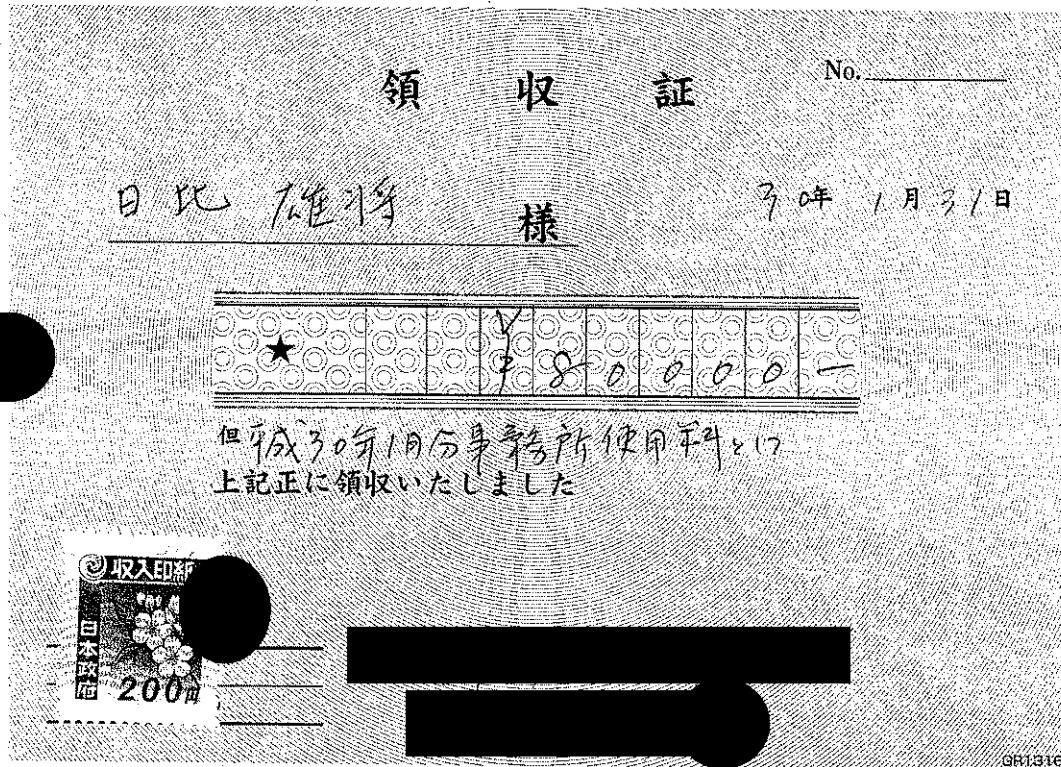 領収証
No.
日比 雄将 様
30年 1月31日
★ ¥80000-
但 平成30年1月分事務所使用料として
上記正に領収いたしました
収入印紙
日本政府
200円
GR1310